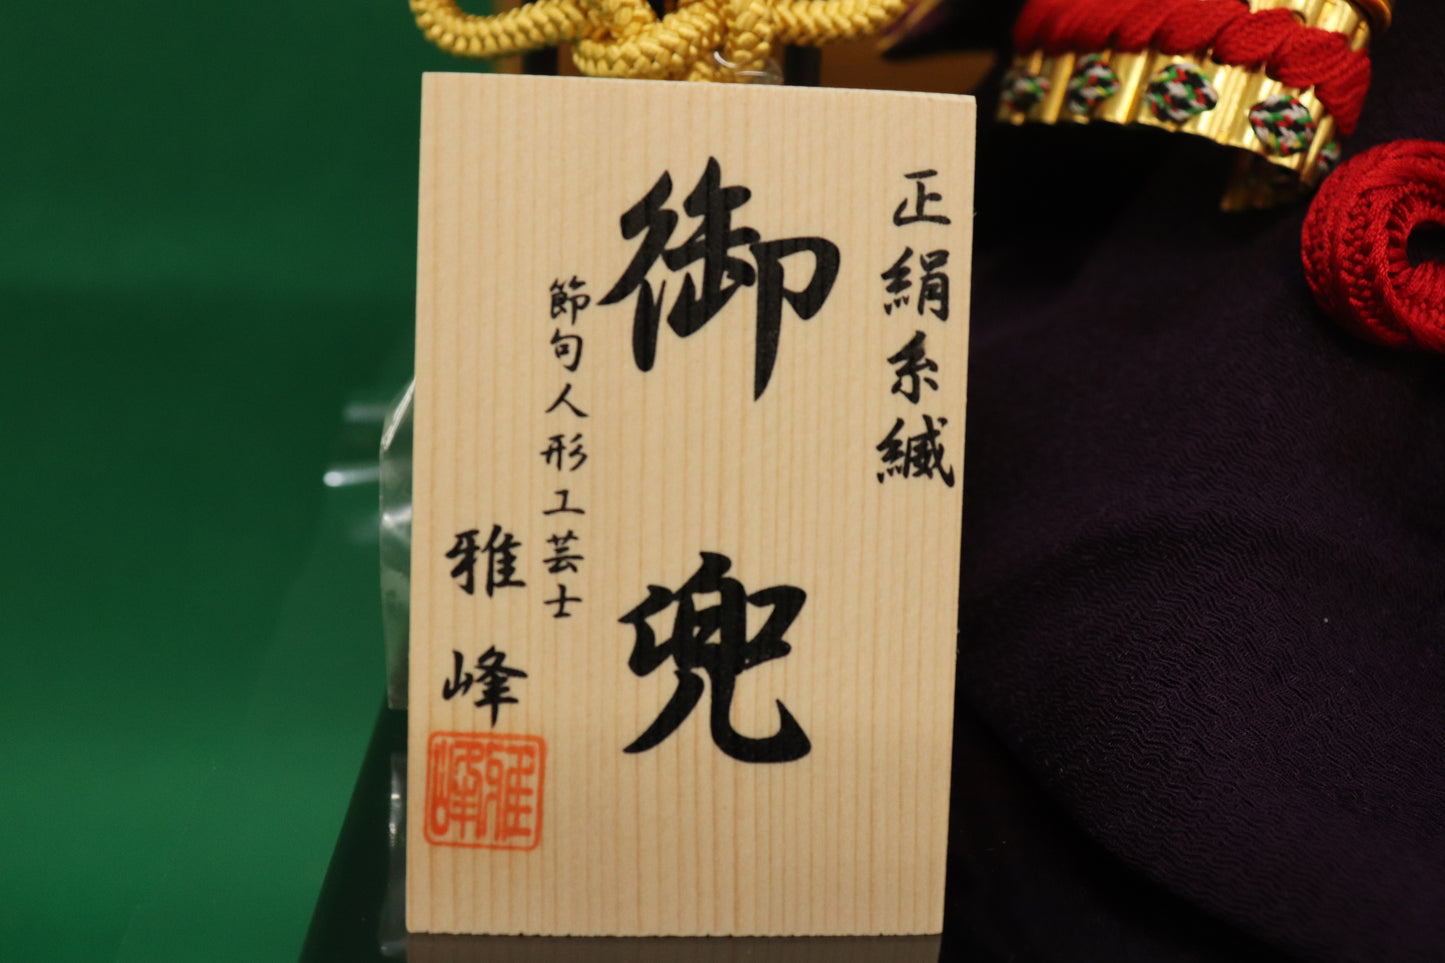 正絹糸縅
御兜
節句人形工芸士
雅峰
雅峰